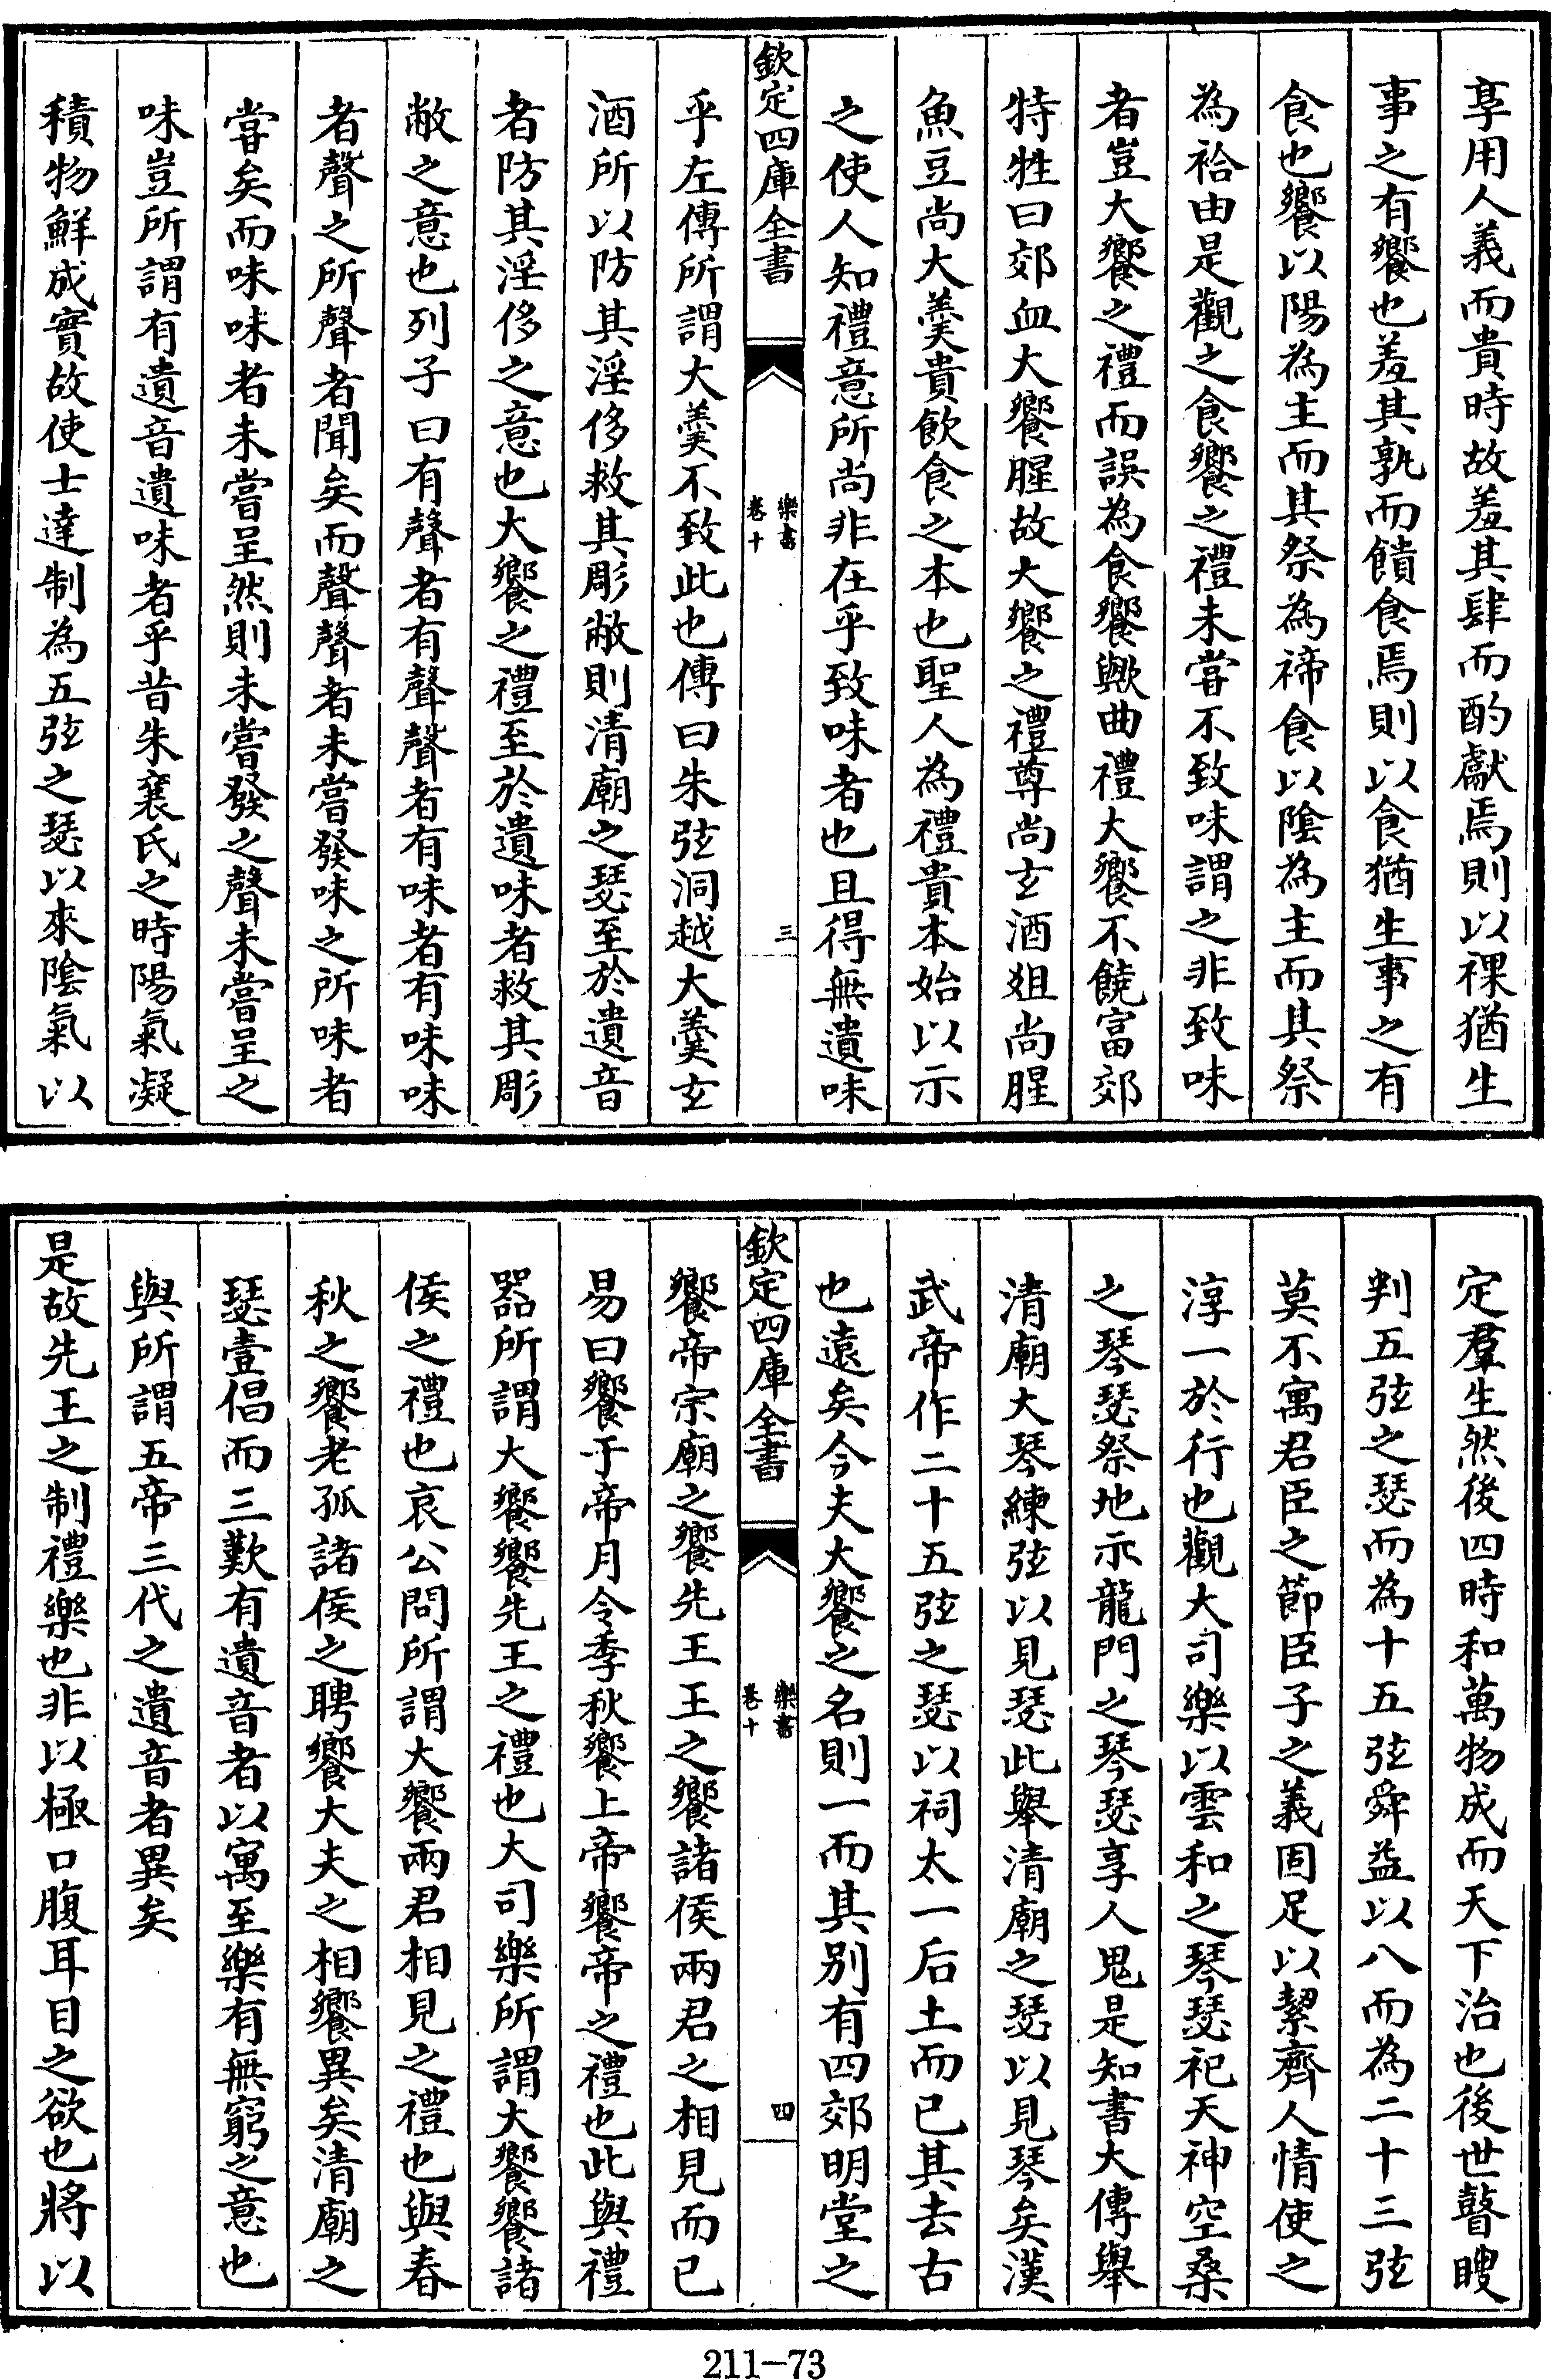 享用人義而貴時故羞其肆而酌獻焉則以祼猶生
事之有饗也羞其孰而饋食焉則以食猶生事之有
食也饗以陽為主而其祭為禘食以陰為主而其祭
為祫由是觀之食饗之禮未嘗不致味謂之非致味
者豈大饗之禮而誤為食饗歟曲禮大饗不饒富郊
特牲曰郊血大饗腥故大饗之禮尊尚玄酒俎尚腥
魚豆尚大羹貴飲食之本也聖人為禮貴本始以示
之使人知禮意所尚非在乎致味者也且得無遺味
欽定四庫全書
樂書
卷十
三
乎左傳所謂大羹不致此也傳曰朱弦洞越大羹玄
酒所以防其淫侈救其彫敝則清廟之瑟至於遺音
者防其淫侈之意也大饗之禮至於遺味者救其彫
敝之意也列子曰有聲者有聲聲者有味者有味味
者聲之所聲者聞矣而聲聲者未嘗發味之所味者
嘗矣而味味者未嘗呈然則未嘗發之聲未嘗呈之
味豈所謂有遺音遺味者乎昔朱襄氏之時陽氣凝
積物鮮成實故使士達制為五弦之瑟以來陰氣以
定羣生然後四時和萬物成而天下治也後世瞽瞍
判五弦之瑟而為十五弦舜益以八而為二十三弦
莫不寓君臣之節臣子之義固足以絜齊人情使之
淳一於行也觀大司樂以雲和之琴瑟祀天神空桑
之琴瑟祭地示龍門之琴瑟享人鬼是知書大傳舉
清廟大琴練弦以見瑟此舉清廟之瑟以見琴矣漢
武帝作二十五弦之瑟以祠太一后土而已其去古
也遠矣今夫大饗之名則一而其別有四郊明堂之
欽定四庫全書
樂書
卷十
四
饗帝宗廟之饗先王王之饗諸侯兩君之相見而已
易曰饗于帝月令季秋饗上帝饗帝之禮也此與禮
器所謂大饗饗先王之禮也大司樂所謂大饗饗諸
侯之禮也哀公問所謂大饗兩君相見之禮也與春
秋之饗老孤諸侯之聘饗大夫之相饗異矣清廟之
瑟壹倡而三歎有遺音者以寓至樂有無窮之意也
與所謂五帝三代之遺音者異矣
是故先王之制禮樂也非以極口腹耳目之欲也將以
211-73